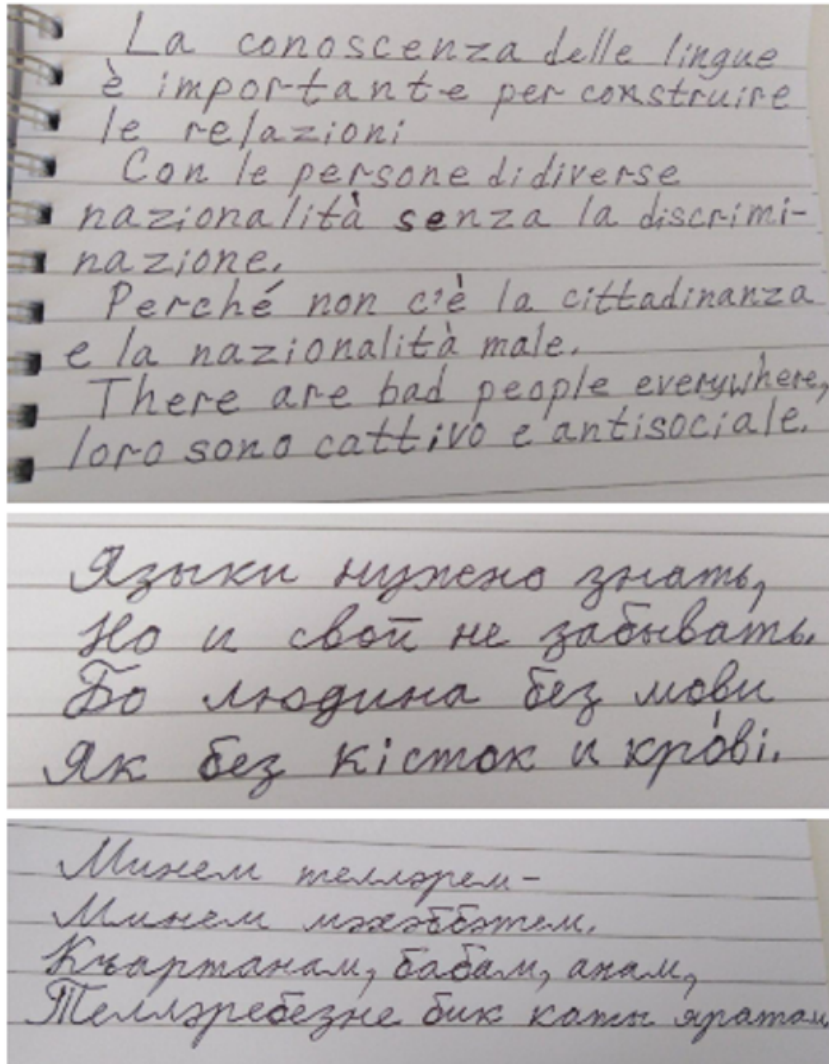 La conoscenza delle lingue
è importante per construire
le relazioni
Con le persone di diverse
nazionalità senza la discrimi-
nazione.
Perché non c'è la cittadinanza
e la nazionalità male.
There are bad people everywhere,
loro sono cattivo e antisociale.
Языки нужно знать,
Но и свой не забывать.
Бо людина без мови
Як без кісток и крóві.
Минем телләрем-
Минем мәхәббәтем.
Къартанам, бабам, анам,
Телләребезне бик каты яратам